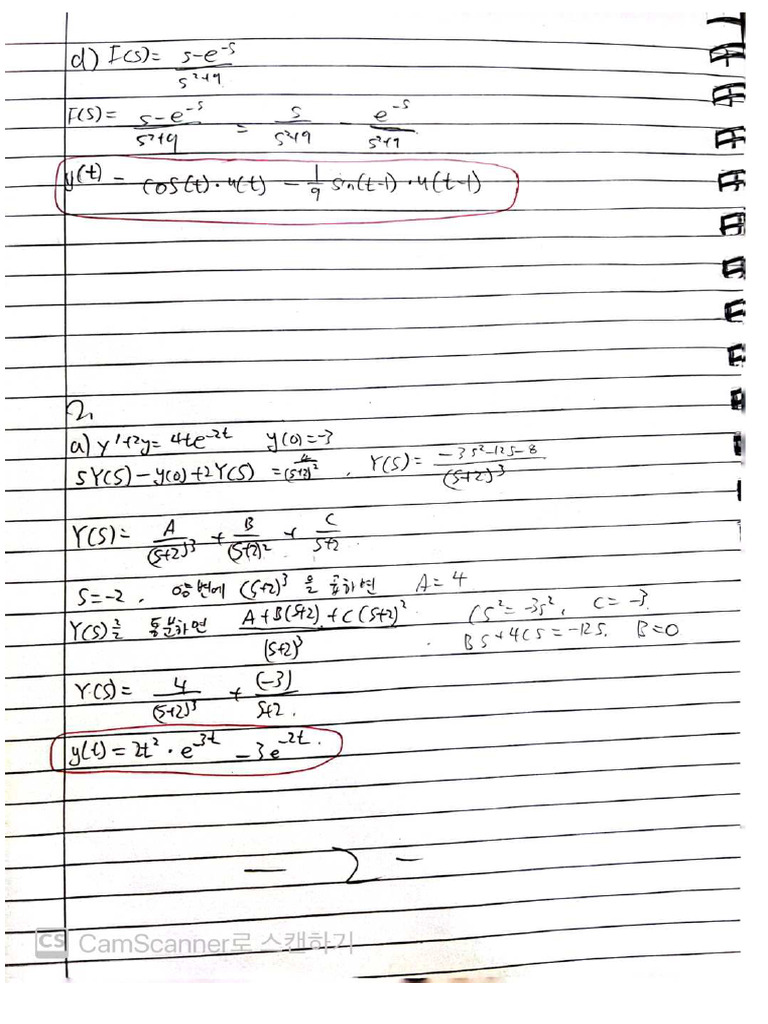 d) F(s)= (s-e^-s)/(s²+9)
F(s)= (s-e^-s)/(s²+9) = s/(s²+9) - e^-s/(s²+9)
y(t) = cos(t)·u(t) - 1/9 sin(t-1)·u(t-1)
2.
a) y'+2y= 4te^-2t y(0)=-3
sY(s)-y(0)+2Y(s) = 4/(s+2)², Y(s)= (-3s²-12s-8)/(s+2)³
Y(s)= A/(s+2)³ + B/(s+2)² + C/(s+2)
s=-2, 양변에 (s+2)³ 을 곱하면 A=4
Y(s)를 통분하면 (A+B(s+2)+C(s+2)²)/(s+2)³ Cs²=-3s², C=-3.
Bs+4Cs=-12s. B=0
Y(s)= 4/(s+2)³ + (-3)/(s+2).
y(t)=2t²·e^-3t -3e^-2t.
- 2 -
CS CamScanner로 스캔하기